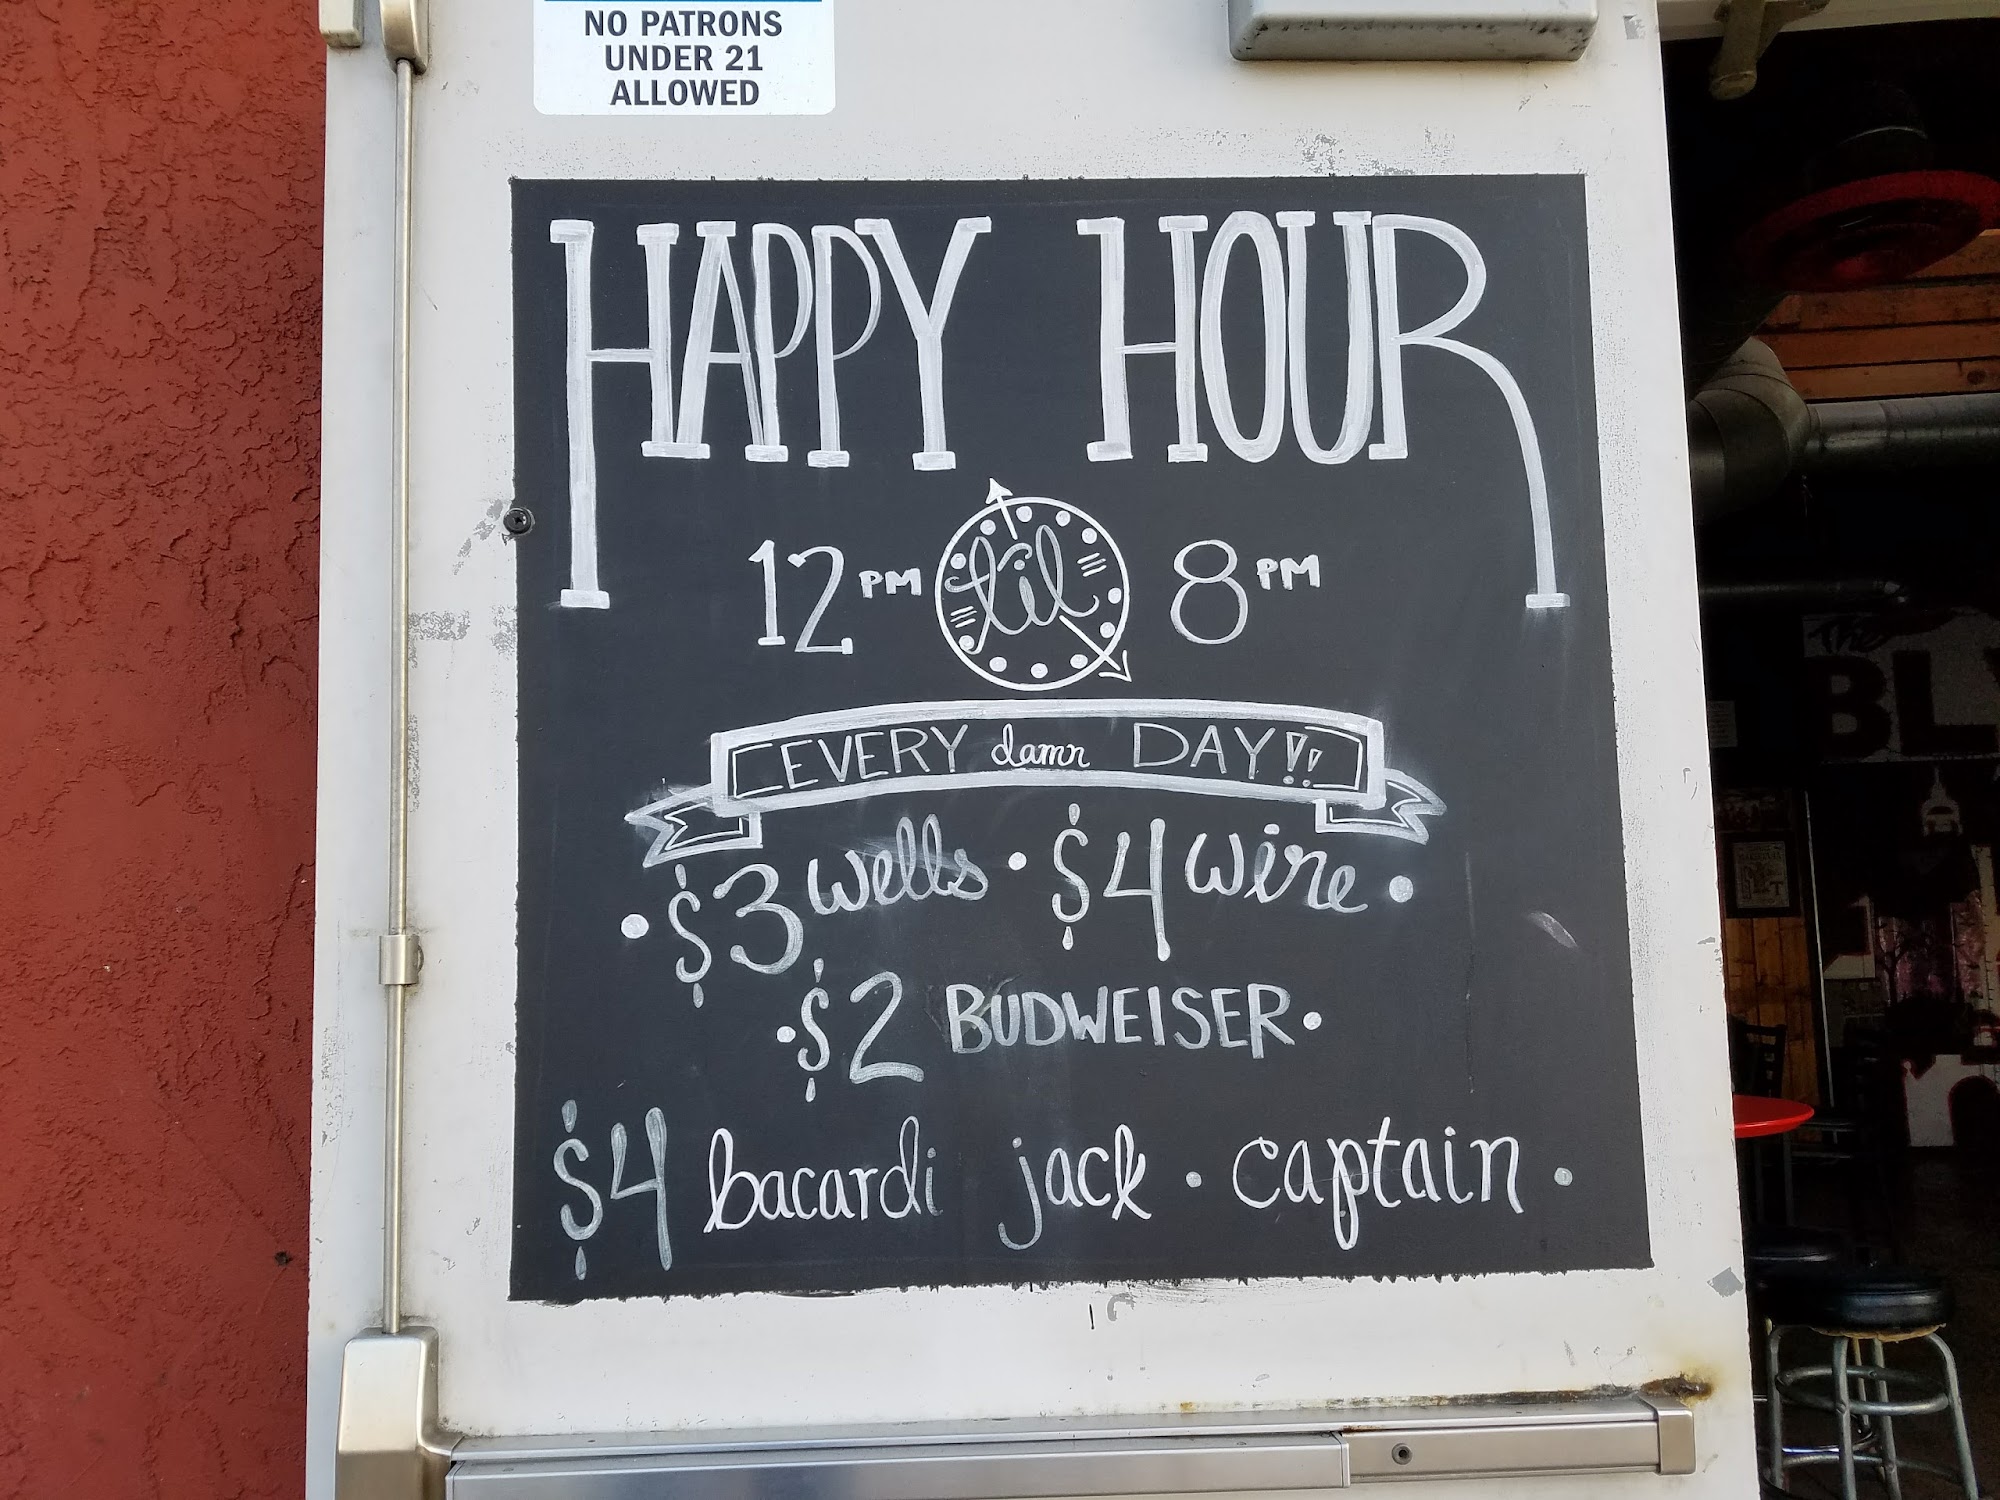 NO PATRONS
UNDER 21
ALLOWED
HAPPY HOUR
12 PM til 8 PM
EVERY damn DAY!!
• $3 wells • $4 wine •
• $2 BUDWEISER •
$4 bacardi jack • captain •
The